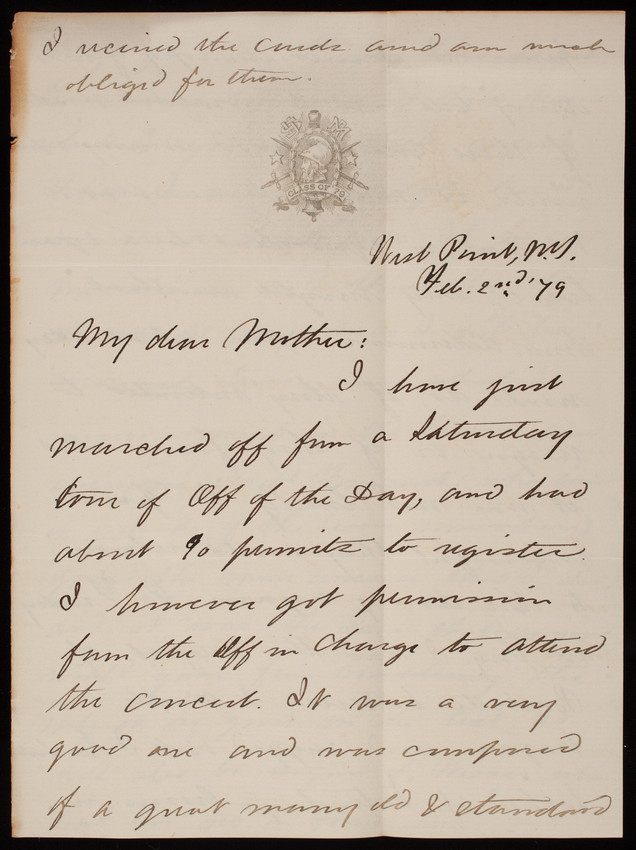 I recieved the cards and am much
obliged for them.
CLASS OF 79
West Point, N.Y.
Feb. 2nd, '79
My dear Mother:
I have just
marched off from a Saturday
tour of Off of the Day, and had
about 90 permits to register.
I however got permission
from the Off in Charge to attend
the concert. It was a very
good one and was composed
of a great many old & standard